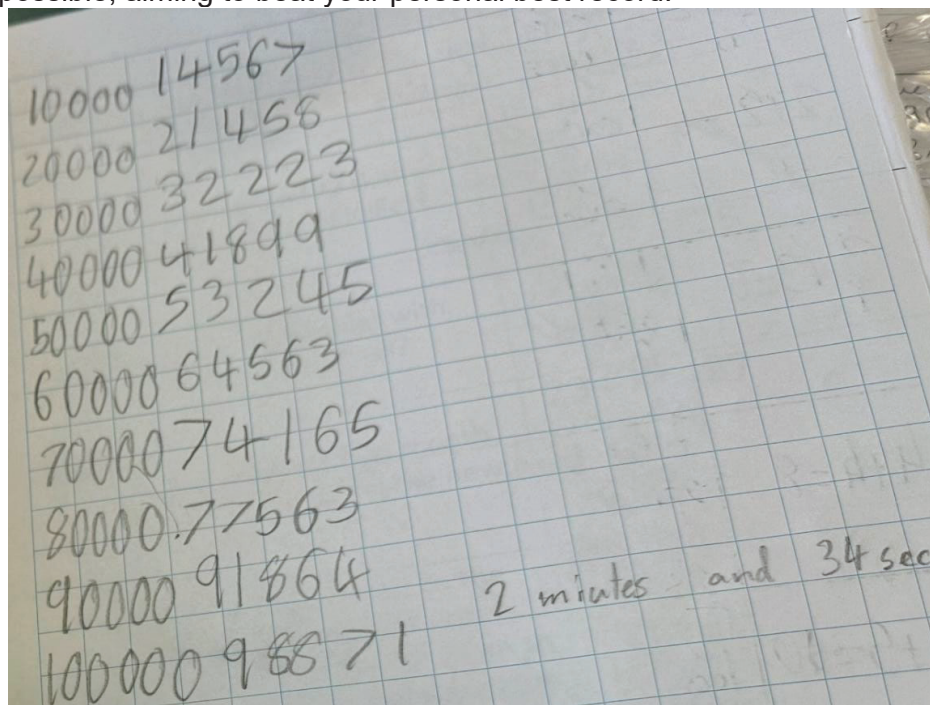 possible, aiming to beat your personal best record.
10000 14567
20000 21458
30000 32223
40000 41899
50000 53245
60000 64563
70000 74165
80000.77563
90000 91864 2 miutes and 34 sec
100000 98871